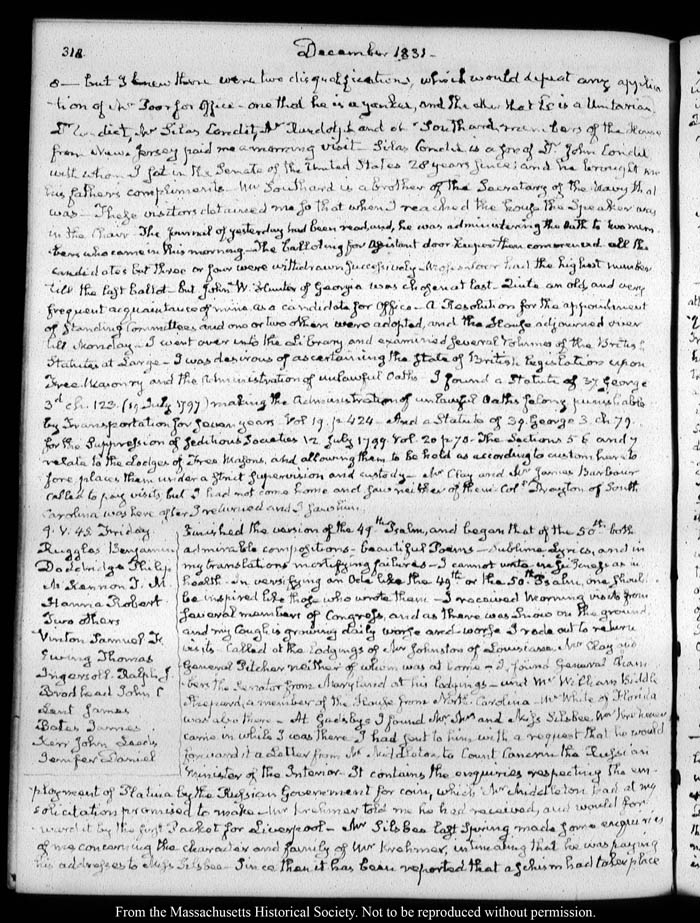 318
December 1831 -
8 - but I knew there were two disqualifications, which would defeat any applica
tion of Mr Poor for Office - one that he is a yankee, and the other that he is a Unitarian
Mr Silas Condit, Mr and Mr Southard members of the House
from New Jersey paid me a morning visit. Silas Condit is a son of Dr John Condit
with whom I sat in the Senate of the United States 28 years since: and he brought me
his father's compliments - Mr Southard is a brother of the Secretary of the Navy that
was - These visitors detained me so that when I reached the house the Speaker was
in the Chair - The Journal of yesterday had been read, and he was administering the Oath to two mem-
bers who came in this morning - The balloting for Assistant door keeper then commenced all the
candidates but three or four were withdrawn successively had the highest number
till the last ballot - but John W. Hunter of Georgia was chosen at last - Quite an old and very
frequent acquaintance of mine, as a candidate for Office - A Resolution for the appointment
of Standing Committees and one or two others were adopted, and the House adjourned over
till Monday - I went over into the Library and examined several volumes of the British
Statutes at Large - I was desirous of ascertaining the State of British Legislation upon
Free Masonry and the Administration of unlawful Oaths - I found a Statute of 37 George
3d ch. 123. (19 July 1797) making the Administration of unlawful Oaths felony punishable
by Transportation for seven years. Vol 19. p 424 - And a Statute of 39. George 3. ch. 79.
for the Suppression of Seditious Societies 12 July 1799. Vol. 20 p 78 - The Sections 5 6 and 7
relate to the Lodges of Free Masons, and allowing them to be held as according to custom hereto
fore places them under a strict supervision and custody - Mr Clay and Mr James Barbour
called to pay visits but I had not come home and saw neither of them. Coll Drayton of South
Carolina was here after I returned and I saw him.
9. V. 45. Friday
Ruggles Benjamin
Doddridge Philip
McKennon T. M.
Hanna Robert
Two others
Vinton Samuel F.
Ewing Thomas
Ingersoll Ralph J.
Brodhead John C
Kent James
Bates James
Kerr John Leeds
Jenifer Daniel
Finished the version of the 49th Psalm, and began that of the 50th both
admirable compositions - beautiful Poems - Sublime Lyrics, and in
my translations mortifying failures - I cannot write in as in
health - In versifying an Ode like the 49th or the 50th Psalm, one should
be inspired like those who wrote them - I received Morning visits from
several members of Congress, and as there was Snow on the ground
and my Cough is growing daily worse and worse I rode out to return
visits - Called at the Lodgings of Mr Johnston of Louisiana Mr Clay and
General Pilcher neither of whom was at home - I found General Cham
bers the Senator from Maryland at his lodgings - and Mr William Biddle
Shepard, a member of the House from North Carolina - Mr White of Florida
was also there - At Gadsby's I found Mr Mrs and Miss Silsbee. Mr Krehmer
came in while I was there. I had sent to him with a request that he would
forward a Letter from Mr Middleton to Count Cancrin the Russian
Minister of the Interior - It contains the enquiries respecting the em-
ployment of Platina by the Russian Government for coin, which Mr Middleton had at my
solicitation promised to make - Mr Krehmer told me he had received, and would for
ward it by the first Packet for Liverpool - Mr Silsbee last Spring made some enquiries
of me concerning the character and family of Mr Krehmer, intimating that he was paying
his addresses to Miss Silsbee - Since then it has been reported that a schism had taken place
From the Massachusetts Historical Society. Not to be reproduced without permission.